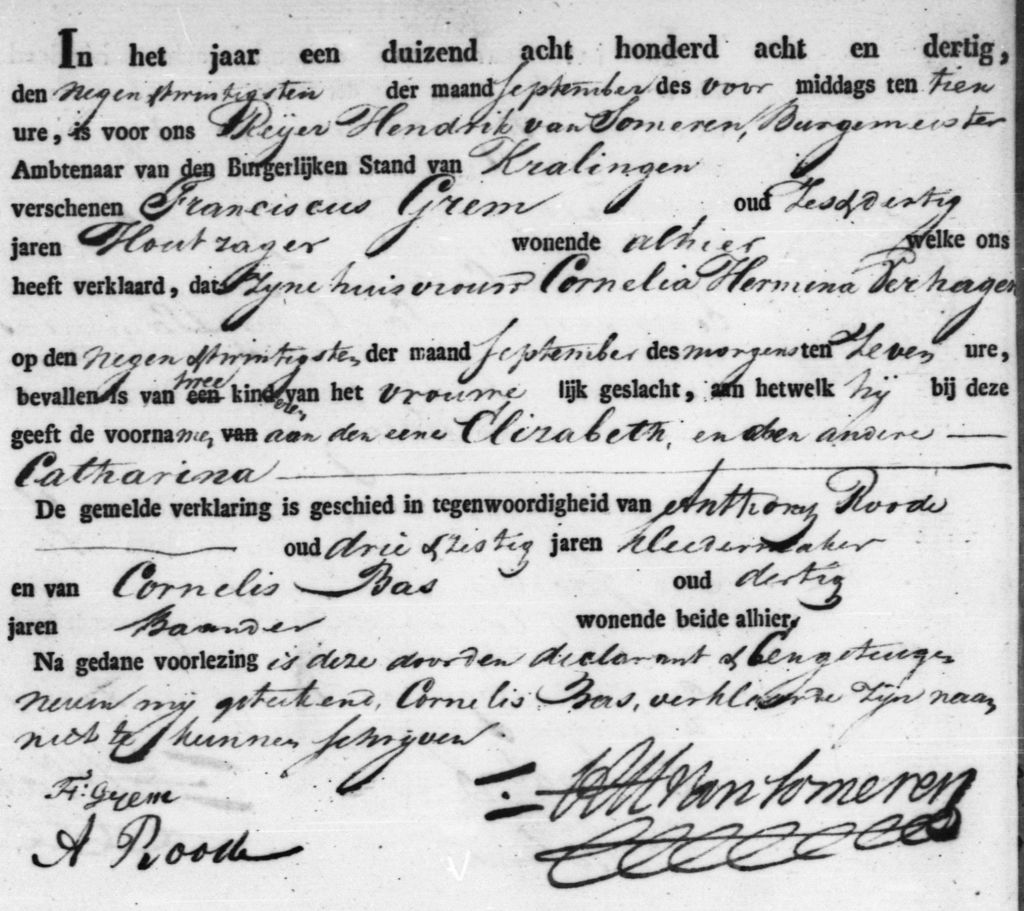 In het jaar een duizend acht honderd acht en dertig,
den negen & twintigsten der maand September des voor middags ten tien
ure, is voor ons Reijer Hendrik van Someren, Burgemeester
Ambtenaar van den Burgerlijken Stand van Kralingen
verschenen Franciscus Grem oud Zes & dertig
jaren Houtzager wonende alhier welke ons
heeft verklaard, dat Zyne huisvrouw Cornelia Hermina Verhagen
op den negen & twintigsten der maand September des morgens ten Zeven ure,
bevallen is van een twee kinderen van het vrouwe lijk geslacht, aan hetwelk hij bij deze
geeft de voorname, van aan den eene Elizabeth, en aben andere —
Catharina —
De gemelde verklaring is geschied in tegenwoordigheid van Anthony Roode
— oud drie & zestig jaren kleedermaker
en van Cornelis Bas oud dertig
jaren Baander wonende beide alhier,
Na gedane voorlezing is deze door den declarant & een getuige
neven mij geteekend, Cornelis Bas, verklaarde zijn naam
niet te kunnen schrijven.
Fr: Grem
RH van Someren
A Roode